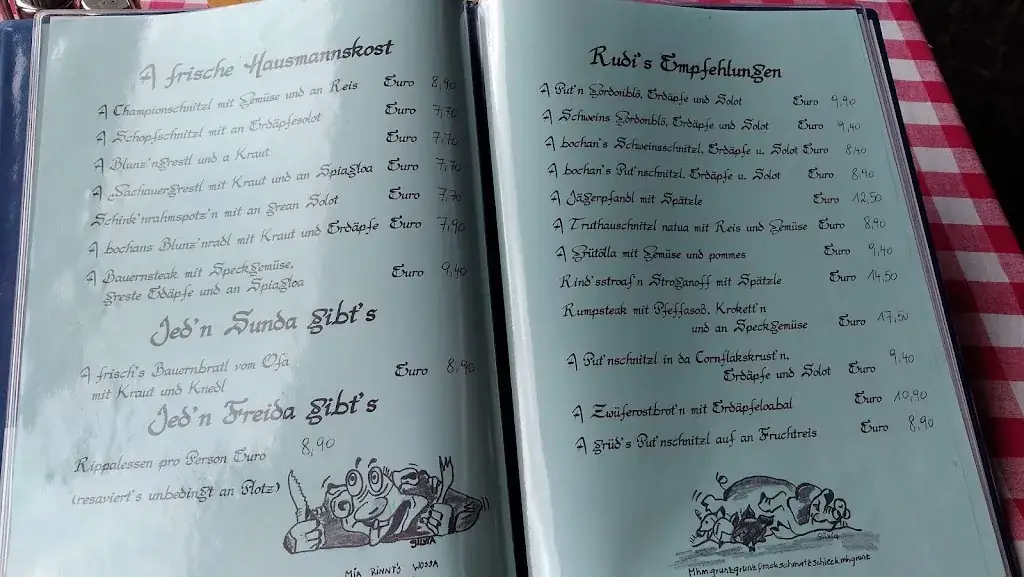 A frische Hausmannskost
A Championschnitzl mit Gemüse und an Reis Euro 8,90
A Schopfschnitzl mit an Erdäpfesolot Euro 7,70
A Blunz'ngrestl und a Kraut Euro 7,70
A Sachauergrestl mit Kraut und an Spiagloa Euro 7,70
Schink'nrahmspotz'n mit an grean Solot Euro 7,70
A bochans Blunz'nradl mit Kraut und Erdäpfe Euro 7,90
A Bauernsteak mit Speckgemüse,
greste Edäpfe und an Spiagloa Euro 9,40
Jed'n Sunda gibt's
A frisch's Bauernbratl vom Ofa
mit Kraut und Knedl Euro 8,90
Jed'n Freida gibt's
Rippalessen pro Person Euro 8,90
(resaviert's unbedingt an Plotz)
SILVIA
MIA RINNT'S WOSSA
Rudi's Empfehlungen
A Put'n Gordonblö, Erdäpfe und Solot Euro 9,90
A Schweins Gordonblö, Erdäpfe und Solot Euro 9,40
A bochan's Schweinsschnitzl, Erdäpfe u. Solot Euro 8,40
A bochan's Put'nschnitzl, Erdäpfe u. Solot Euro 8,90
A Jägerpfandl mit Spätzle Euro 12,50
A Truthauschnitzl natua mit Reis und Gemüse Euro 8,90
A Grütölla mit Gemüse und pommes Euro 9,40
Rind'sstroaf'n Stroganoff mit Spätzle Euro 14,50
Rumpsteak mit Pfeffasoß, Krokett'n
und an Speckgemüse Euro 17,50
A Put'nschnitzl in da Cornflakskrust'n,
Erdäpfe und Solot Euro 9,40
A Zwüferostbrot'n mit Erdäpfeloabal Euro 10,90
A grüd's Put'nschnitzl auf an Fruchtreis Euro 8,90
Silvia